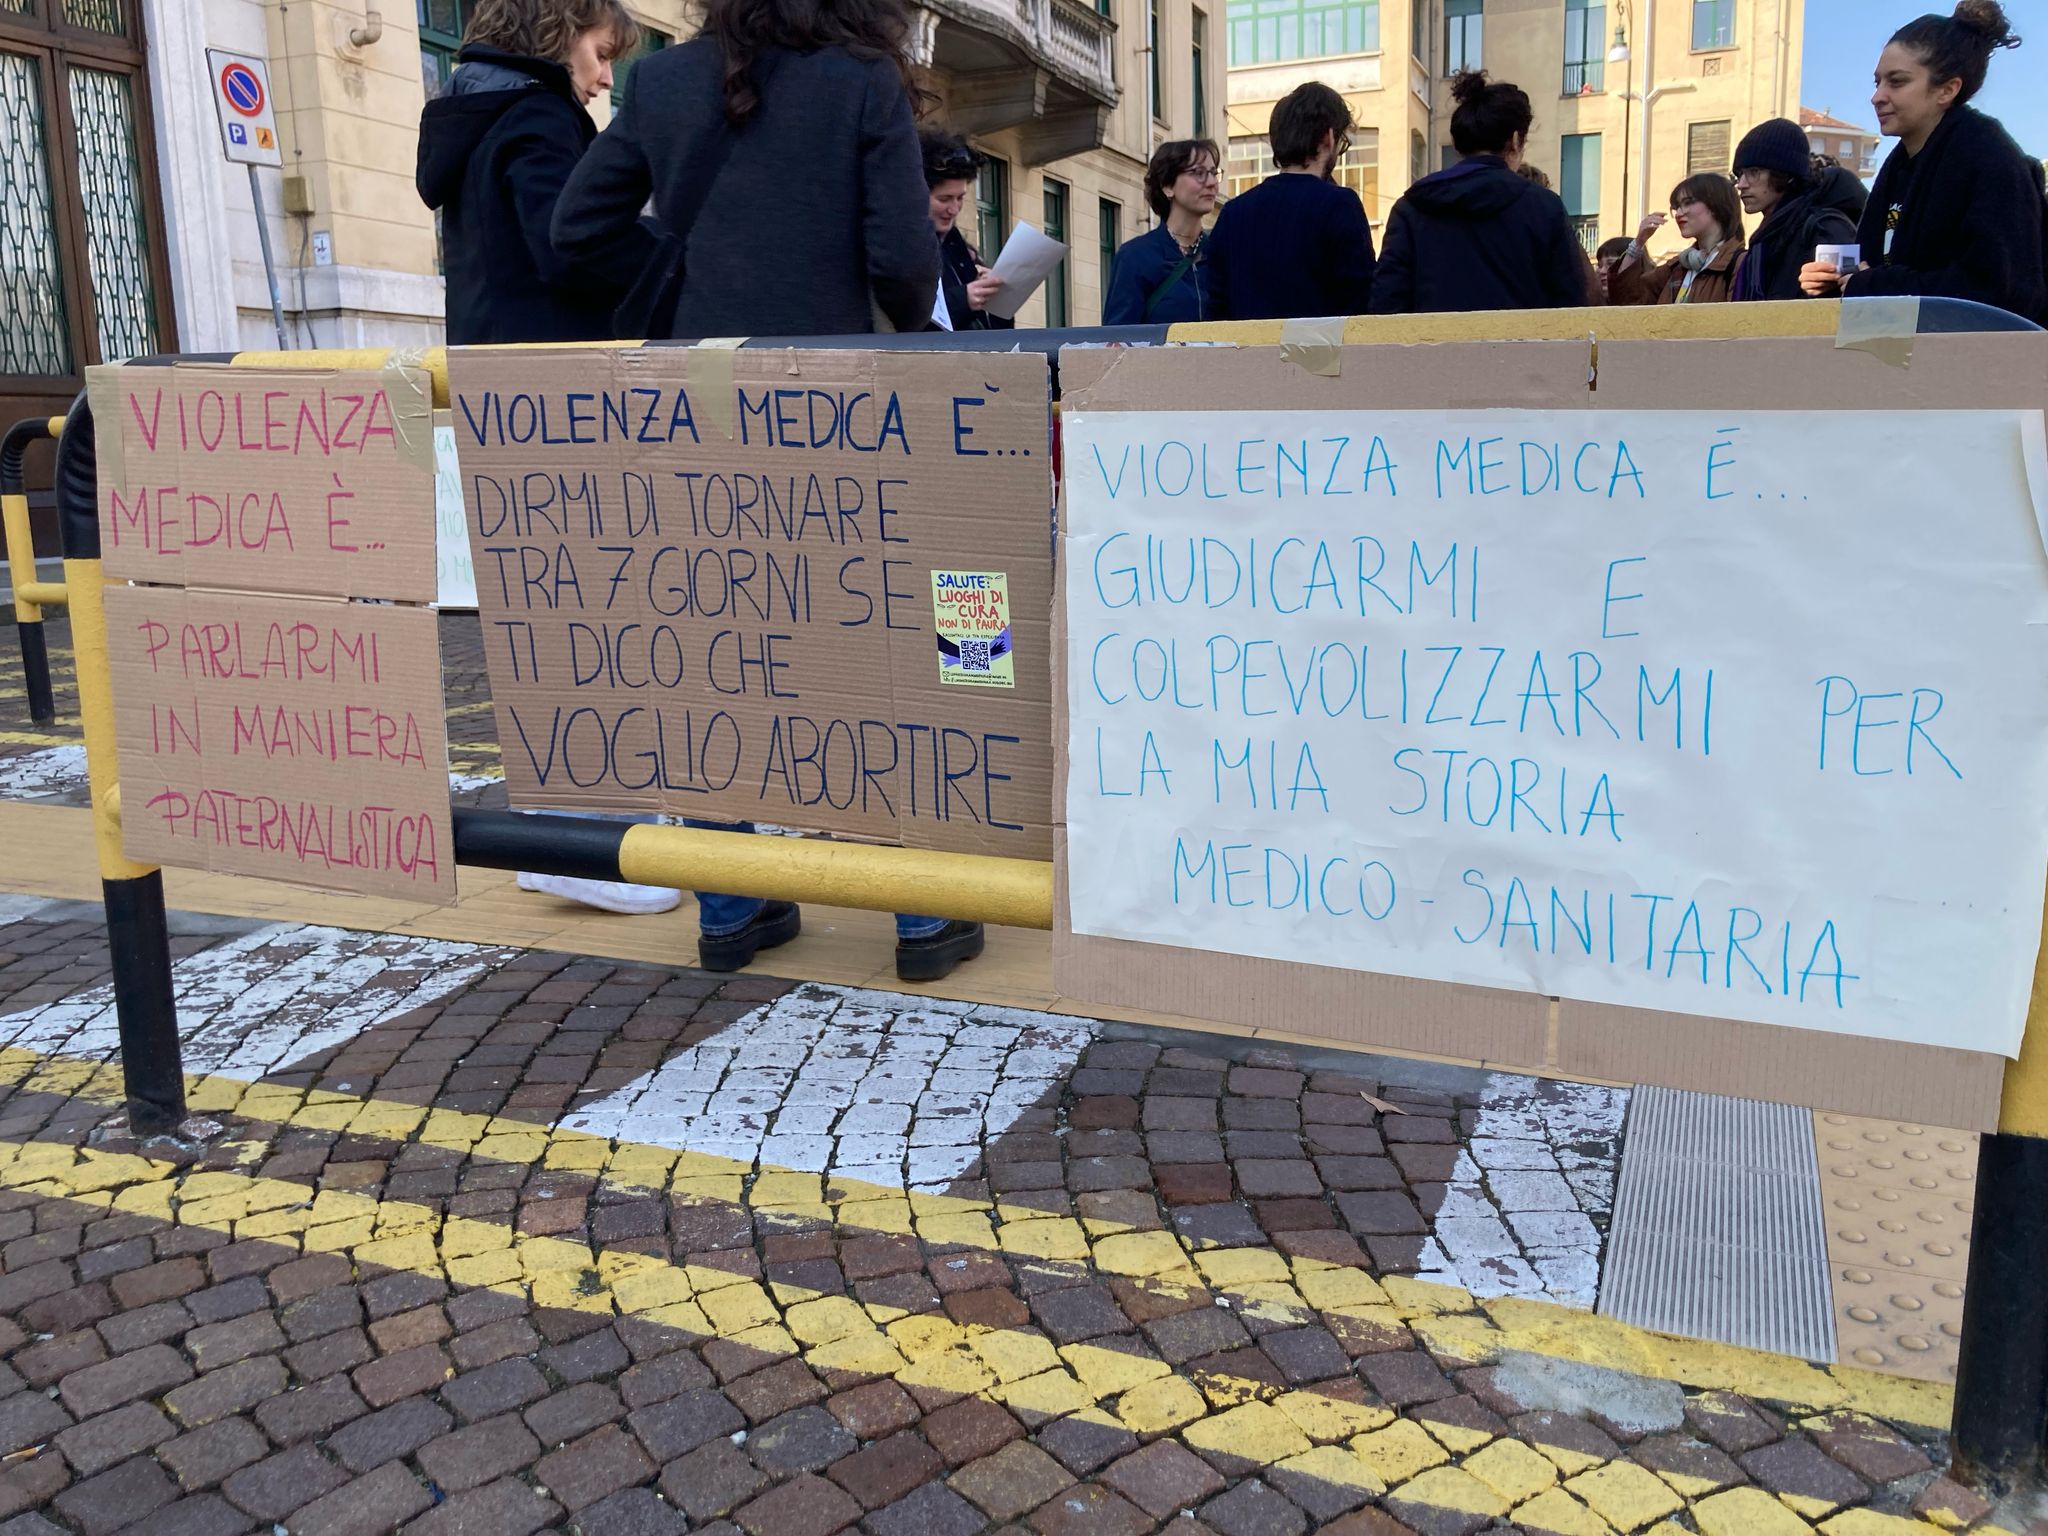 P
VIOLENZA
MEDICA È...
PARLARMI
IN MANIERA
PATERNALISTICA
VIOLENZA MEDICA È...
DIRMI DI TORNARE
TRA 7 GIORNI SE
TI DICO CHE
VOGLIO ABORTIRE
SALUTE:
LUOGHI DI
CURA
NON DI PAURA
RACCONTACI LA TUA ESPERIENZA
VIOLENZA MEDICA È...
GIUDICARMI E
COLPEVOLIZZARMI PER
LA MIA STORIA
MEDICO-SANITARIA